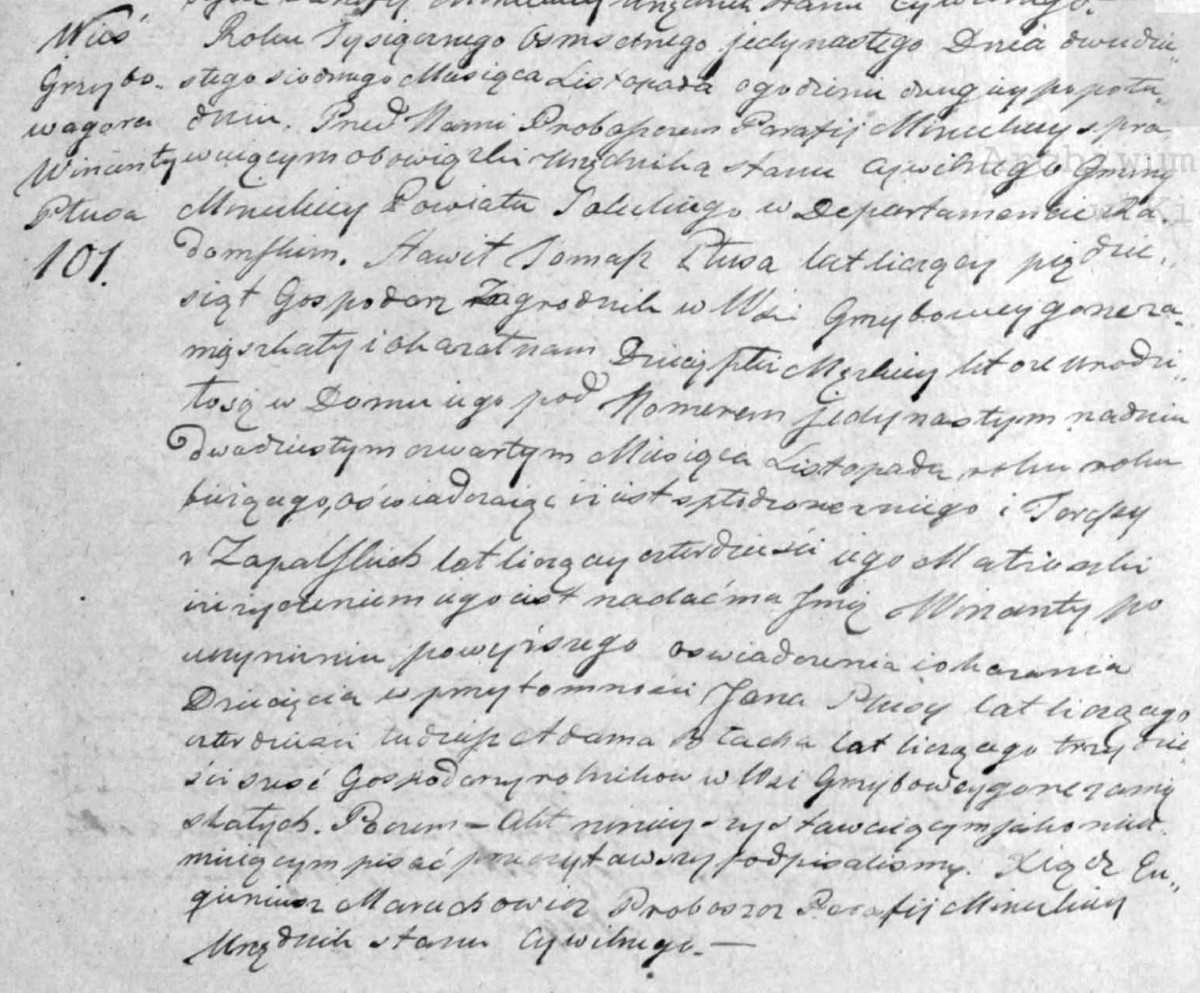 Wieś
Grzybo-
wagora
Wincenty
Płusa
101.
Roku Tysiącznego Osmsetnego jedynastego Dnia dwudzie-
stego siodmego Miesiąca Listopada o godzinie drugiey popołu-
dniu. Przed Nami Proboszczem Parafij Mireckiey spra
wuiącym obowiązki Urzędnika stanu Cywilnego Gminy
Mireckiey Powiatu Soleckiego w Departamencie Ra-
domskim. Stawił Tomasz Płusa lat liczący pięćdzie-
siąt Gospodarz Zagrodnik w Wsi Grzybowey gorze za-
mięszkały i okazał nam Dziecię płci Męzkiey które urodzi-
ło się w Domu iego pod Numerem jedynastym na dniu
dwudziestym czwartym Miesiąca Listopada roku roku
bieżącego, oświadczaiąc iż iest spłodzone z niego i Jorefy
z Zapalskich lat liczącey czterdzieści iego Małżonki
iż życzeniem iego iest nadać mu Imię Wincenty po
uczynieniu powyższego oswiadczenia i okazania
Dziecięcia w przytomności Jana Płusy lat liczącego
czterdzieści tudzież Adama lat liczącego trzydzie-
ści sześć Gospodarzy rolnikow w Wsi Grzybowey gorze zamię
szkałych. Poczem - Akt ninieyszy stawaiącym jako nieu-
mieiącym pisać przeczytawszy podpisalismy. Xiądz Eu-
geniusz Marachowicz Proboszcz Parafij Mireckiey
Urzędnik stanu Cywilnego. —